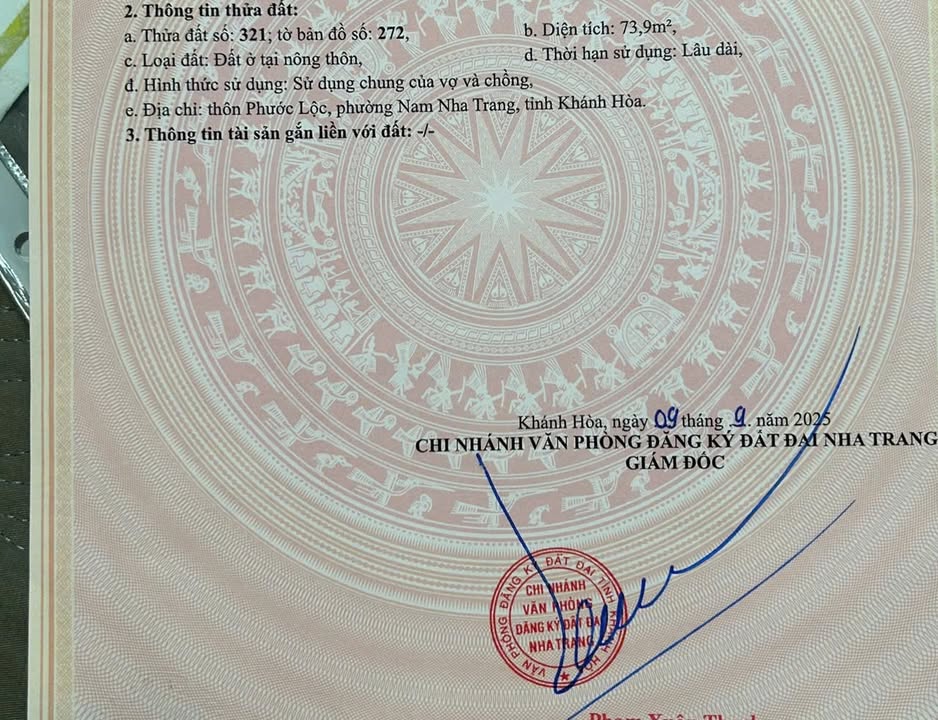 2. Thông tin thửa đất:
a. Thửa đất số: 321; tờ bản đồ số: 272,
b. Diện tích: 73,9m²,
c. Loại đất: Đất ở tại nông thôn,
d. Thời hạn sử dụng: Lâu dài,
đ. Hình thức sử dụng: Sử dụng chung của vợ và chồng,
e. Địa chỉ: thôn Phước Lộc, phường Nam Nha Trang, tỉnh Khánh Hòa.
3. Thông tin tài sản gắn liền với đất: -/-
Khánh Hòa, ngày 09 tháng .9. năm 2025
CHI NHÁNH VĂN PHÒNG ĐĂNG KÝ ĐẤT ĐAI NHA TRANG
GIÁM ĐỐC
VĂN PHÒNG ĐĂNG KÝ ĐẤT ĐAI TỈNH KHÁNH HÒA
CHI NHÁNH
VĂN PHÒNG
ĐĂNG KÝ ĐẤT ĐAI
NHA TRANG